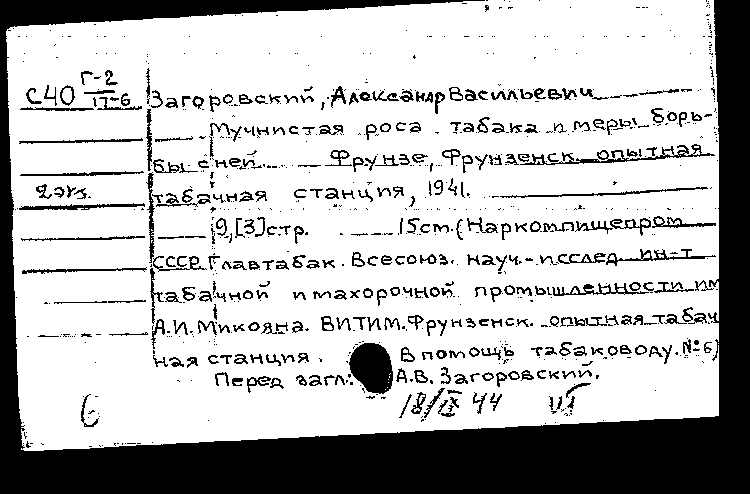 С40 Г-2
IT-6 Загоровский, Александр Васильевич
Мучнистая роса табака и меры борь-
бы с ней. Фрунзе, Фрунзенск. опытная
2 экз. табачная станция, 1941.
9,[3]стр. 15cm. (Наркомпищепром
СССР. Главтабак. Всесоюз. науч.-исслед. ин-т
табачной и махорочной промышленности им
А.И. Микояна. ВИТИМ. Фрунзенск. опытная табач
ная станция. В помощь табаководу. № 6)
Перед загл.: А.В. Загоровский.
6 18/IX 44